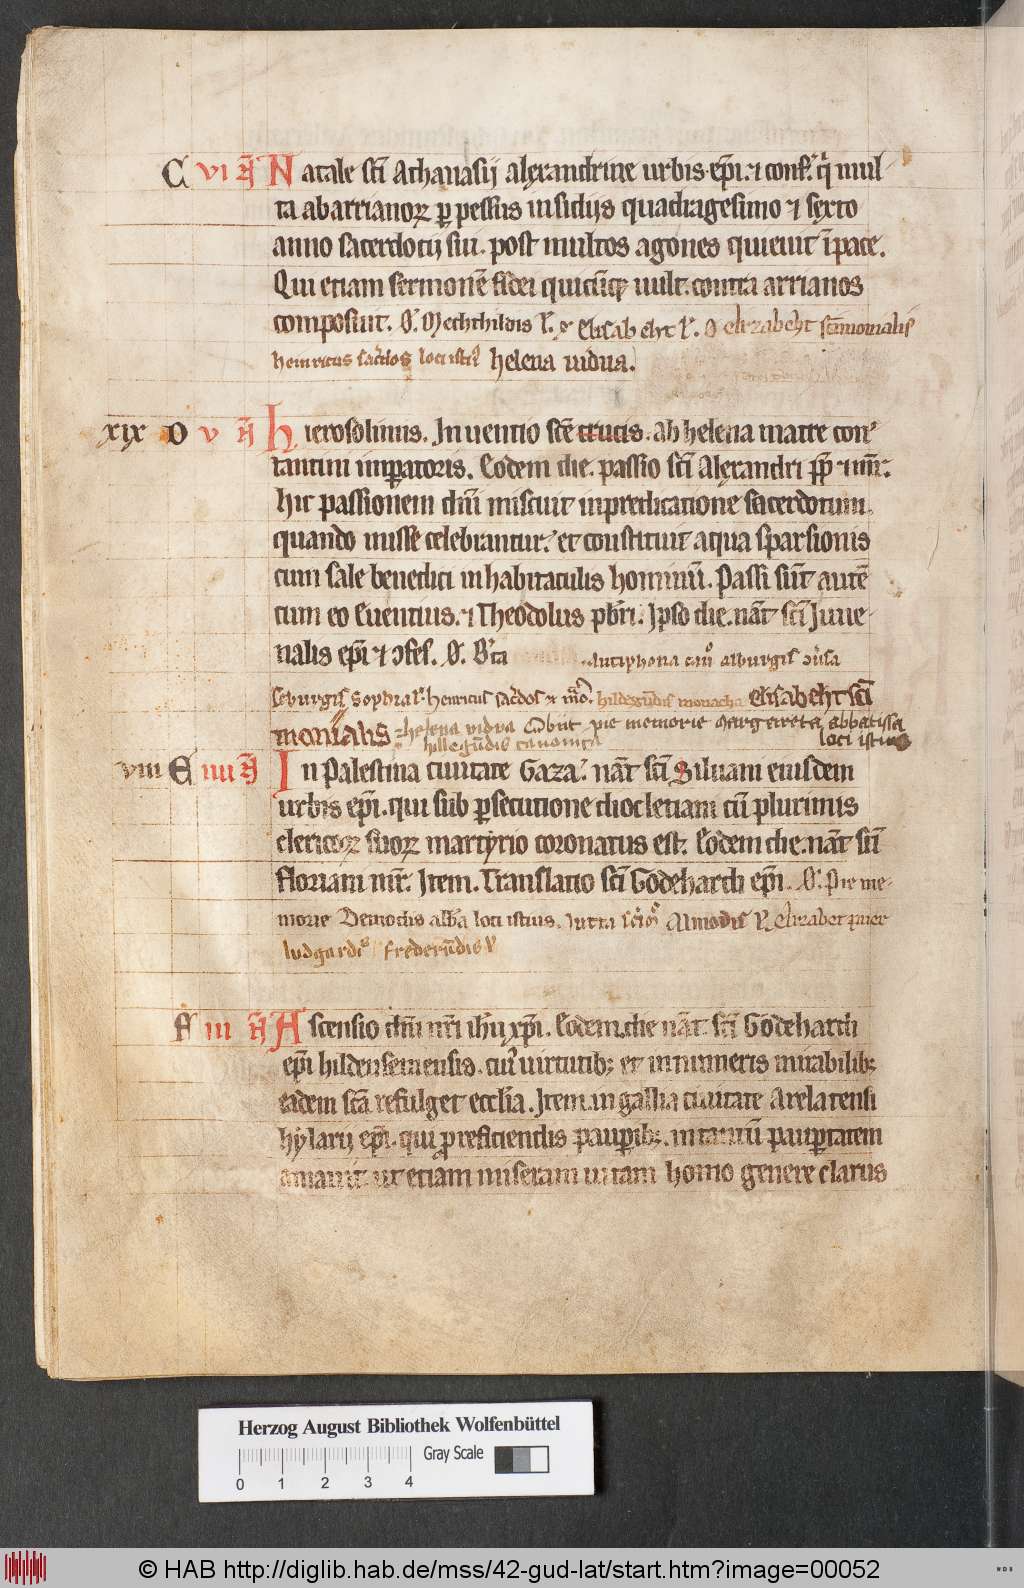 C vi A Natale sci Athanasij alexandrine urbis epi ⁊ conf. q mul
ta ab arrianoꝝ ꝑpessus insidijs quadragesimo ⁊ sexto
anno sacerdocij sui. post multos agones quieuit ī pace.
Qui etiam sermonē fidei quicūq uult. contra arrianos
composuit. O. Mechthildis l. ⁊ Elisabeht l. O elizabeht scīmonialis
heinricus sacdos loci isti helena uidua.
xix D v A hierosolimis. Inuentio sce crucis. ab helena matre con
tantini imꝑatoris. Eodem die. passio sci Alexandri pp ⁊ mr.
hic passionem dni miscuit in predicatione sacerdotum.
quando misse celebrantur. et constituit aqua sparsionis
cum sale benedici in habitaculis hominū. Passi sūt autē
cum eo Euentius. ⁊ Theodolus pbri. Ipso die. nat sci Juue
nalis epi ⁊ ɔfes. O. B'ta Antiphona alburgis
seburgis sophia l. henricus sacdos ⁊ mo. hildegūdis monacha Elisabeht sci
monialis helena vidua Obiit pie memorie Margareta abbatissa
hillegūdis canonica loci istius
viii E iiii A In Palestina ciuitate Gaza. nat sci Siluani eiusdem
urbis epi. qui sub ꝑsecutione diocletiani cū plurimis
clericoꝝ suoꝝ martyrio coronatus est. Eodem die. nat sci
floriani mr. Item. Translatio sci Godehardi epi. O. Pie me
morie Demodis abba loci istius. Jutta Almodis l. elizabet
ludgardis frederūdis l
F iii A Ascensio dni nri ihu xpi. Eodem die nat sci Godehardi
epi hildensemensis. cui uirtutib; et innumeris mirabilib;
eadem sca refulget ecclia. Item. in gallia ciuitate Arelatensi
hylarij epi. qui pro reficiendis pauꝑib;. in tantū pauꝑtatem
amauit ut etiam miseram uitam homo genere clarus
Herzog August Bibliothek Wolfenbüttel
Gray Scale
0 1 2 3 4
© HAB http://diglib.hab.de/mss/42-gud-lat/start.htm?image=00052